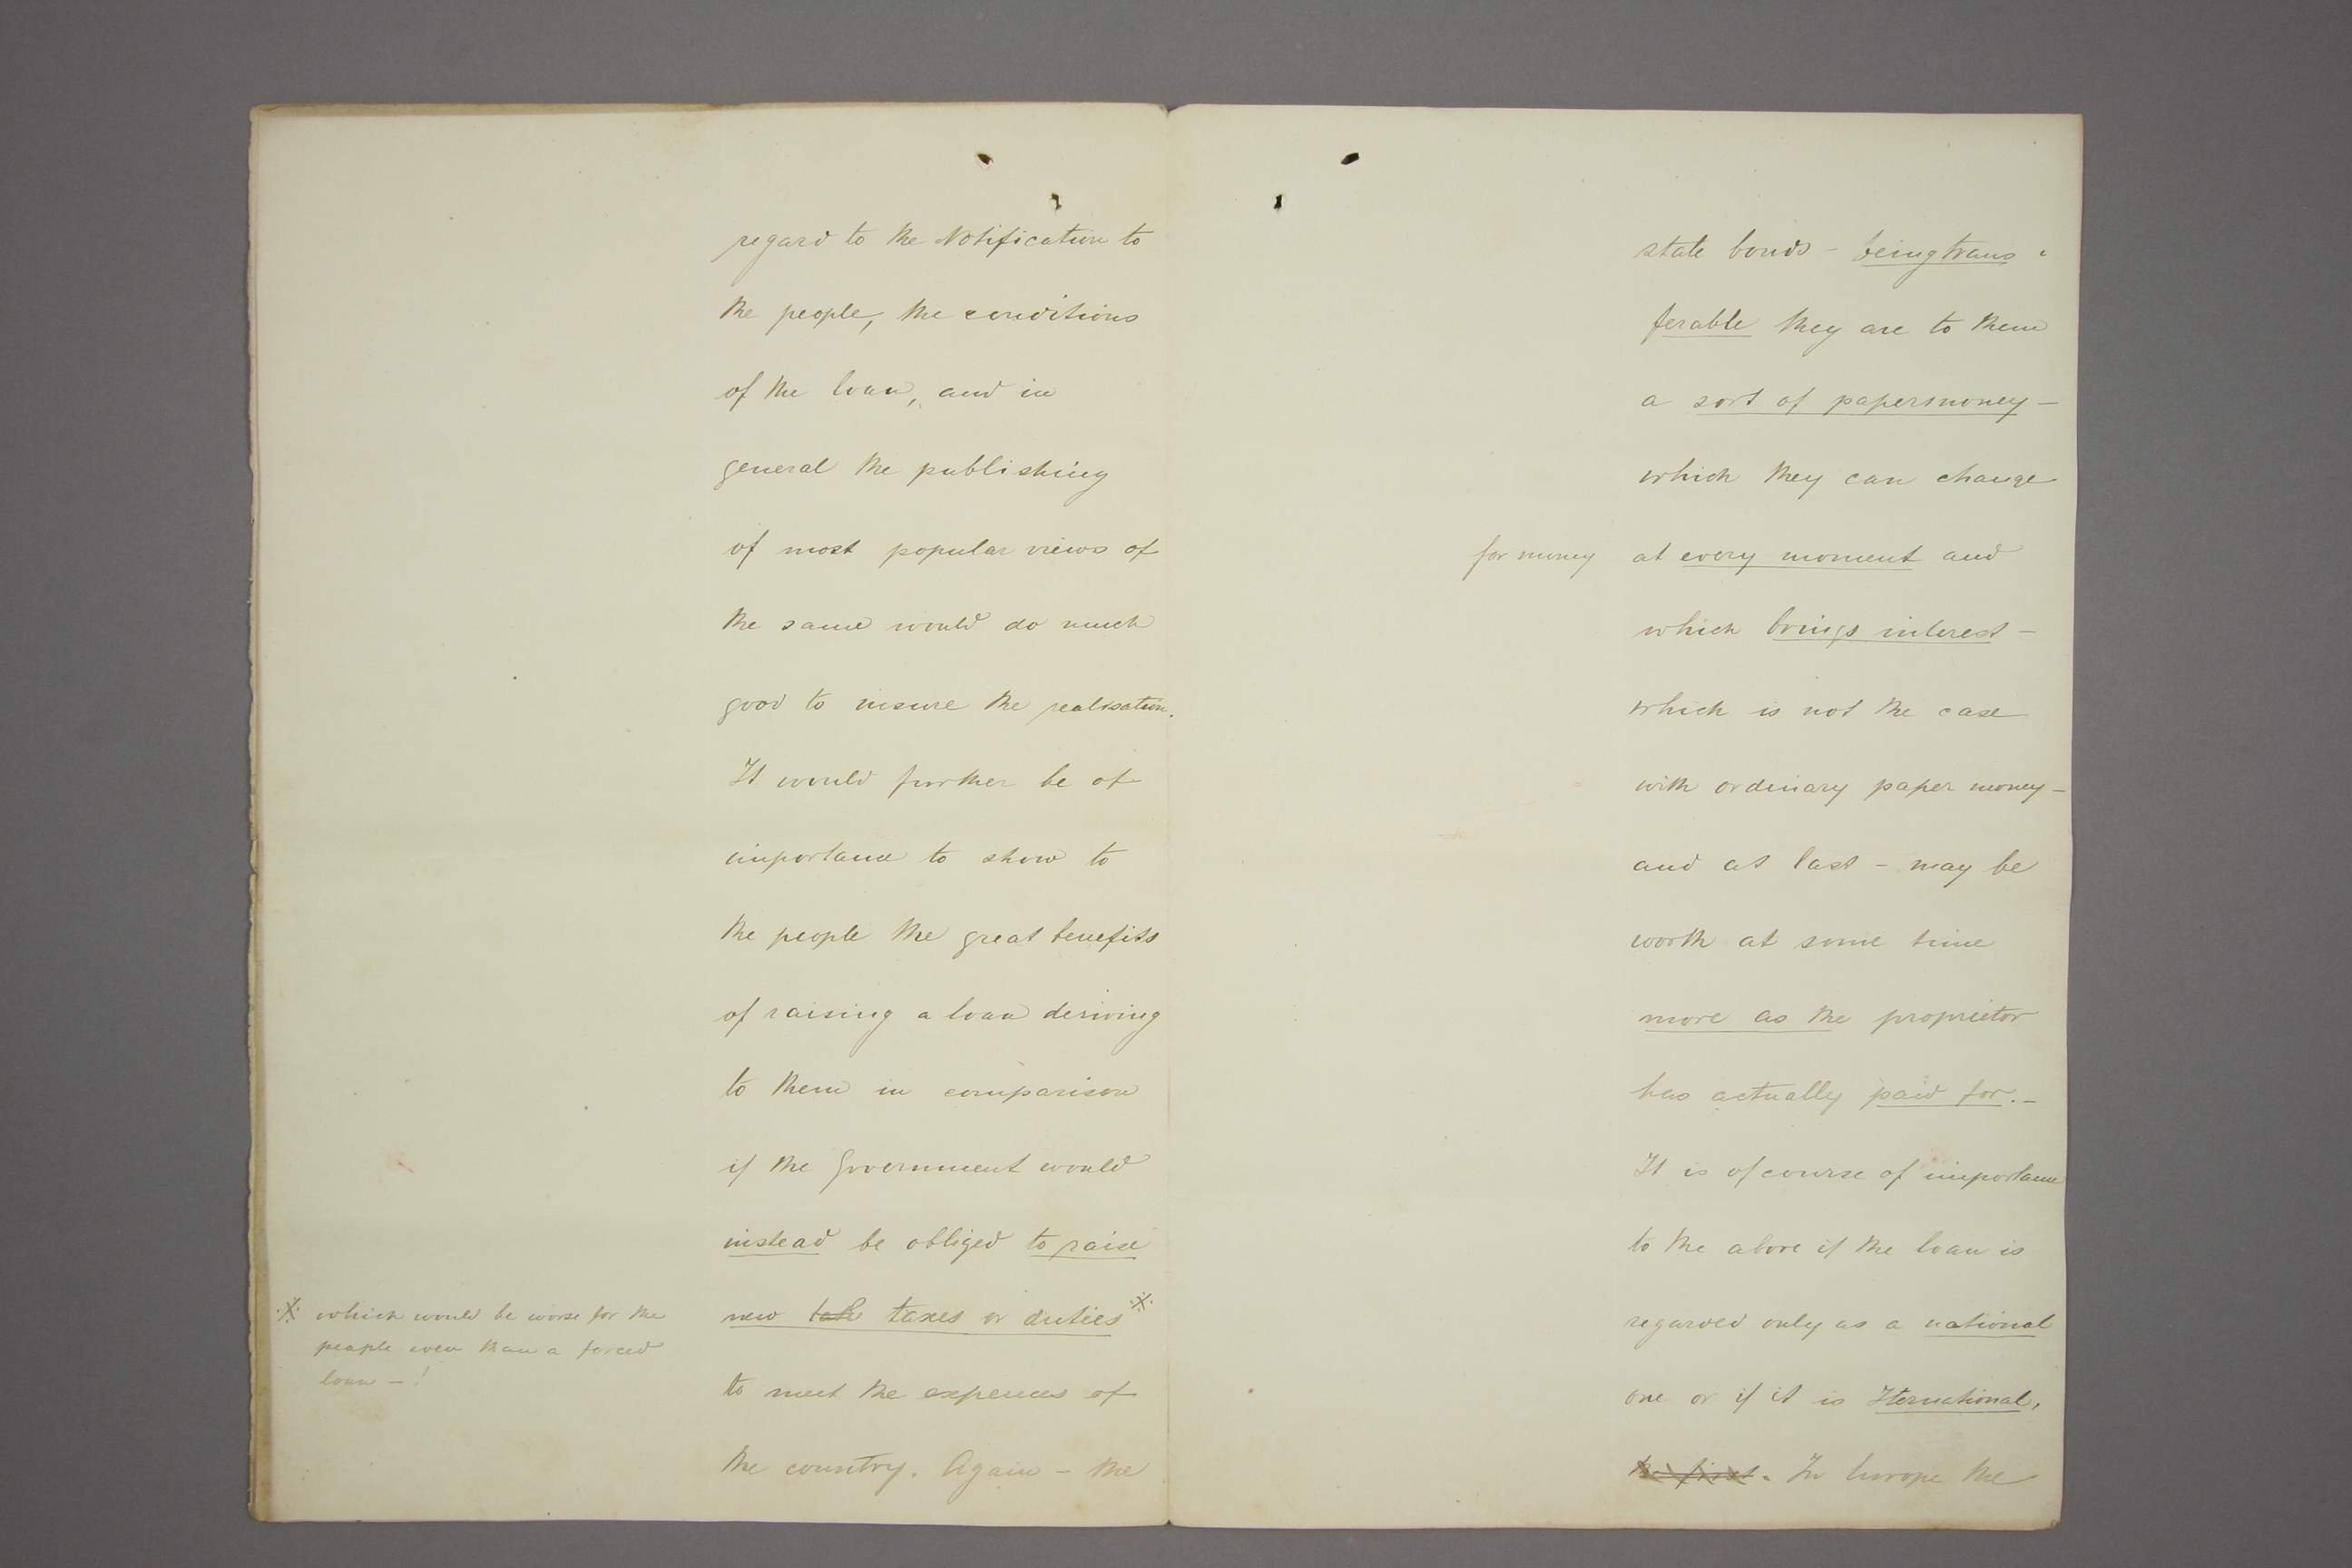 regard to the Notification to
the people, the conditions
of the loan, and in
general the publishing
of most popular views of
the same would do much
good to insure the realisation.
It would further be of
importance to show to
the people the great benefits
of raising a loan deriving
to them in comparison
if the Government would
instead be obliged to raise
new taxes or duties ※
to meet the expences of
the country. Again - the
※ which would be worse for the
people even than a forced
loan - !
state bonds - being trans-
ferable they are to them
a sort of papermoney -
which they can change
for money at every moment and
which brings interest -
which is not the case
with ordinary paper money -
and at last - may be
worth at some time
more as the proprietor
has actually paid for. -
It is of course of importance
to the above if the loan is
regarded only as a national
one or if it is Iternational,
the first. In Europe the